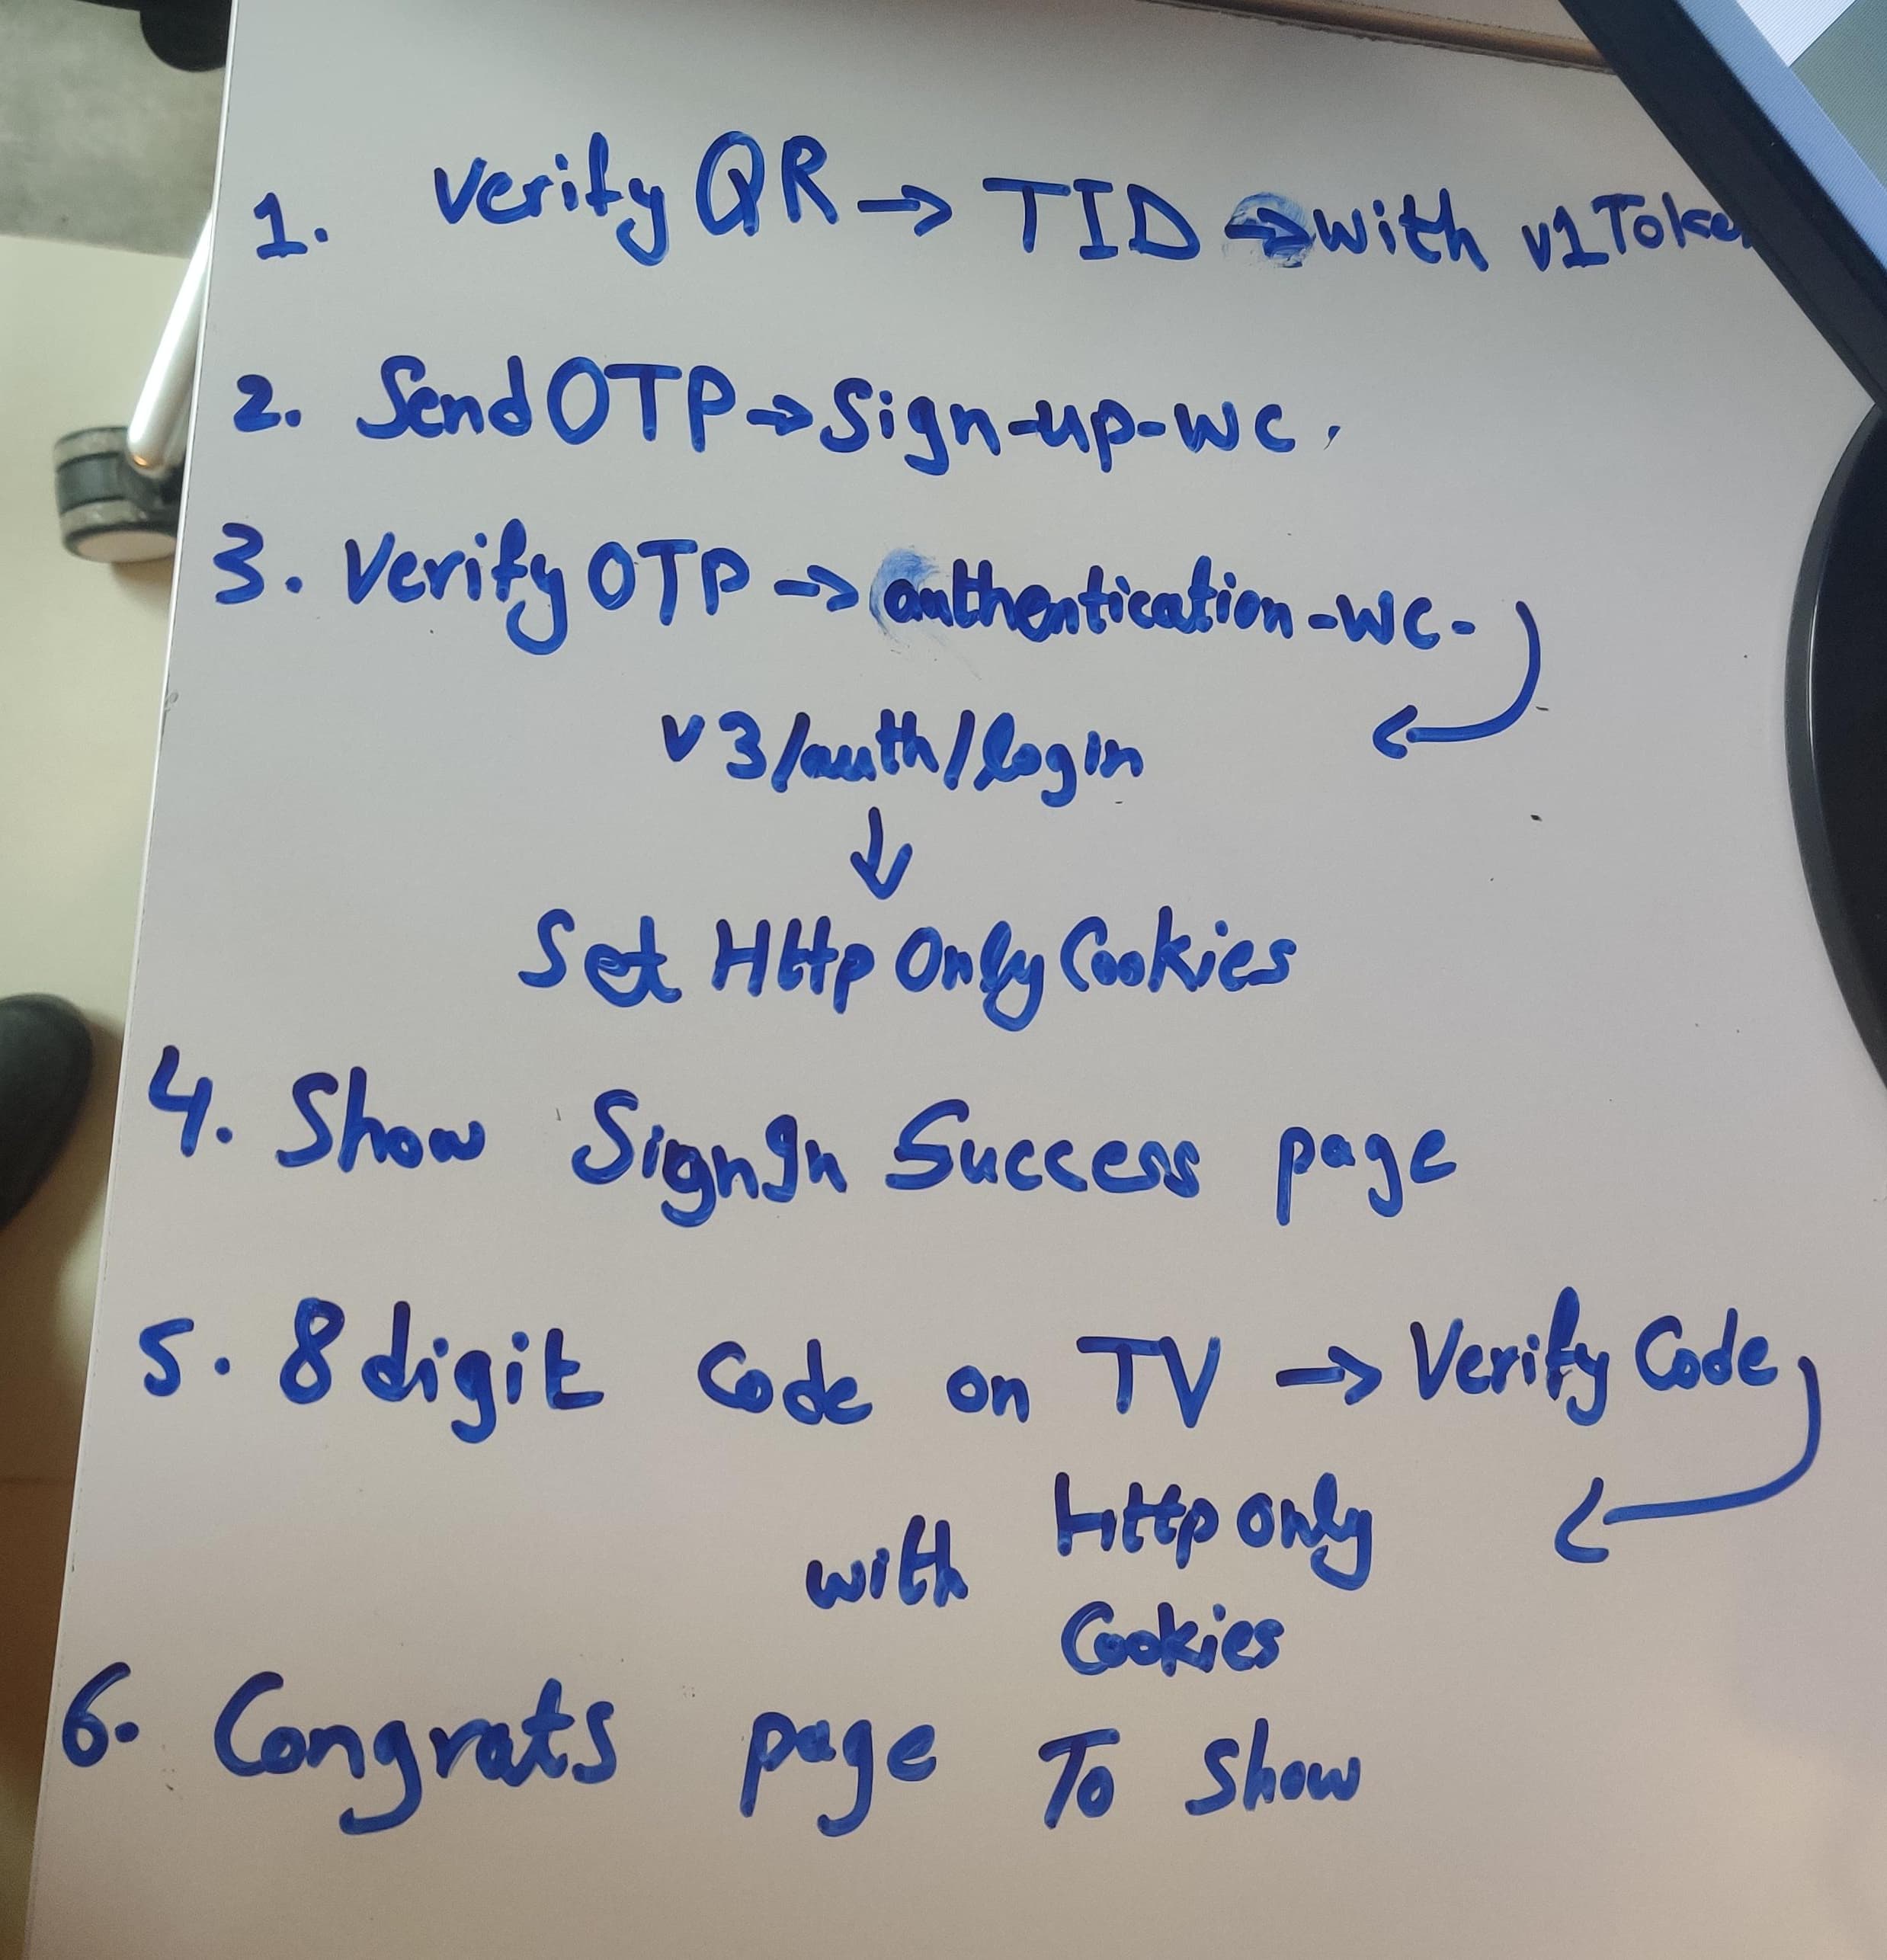 1. Verify QR → TID → with v1 Token
2. Send OTP → Sign-up-wc.
3. Verify OTP → authentication-wc-
v3/auth/login
↓
Set Http Only Cookies
4. Show SignIn Success page
5. 8 digit Code on TV → Verify Code
with Http only
Cookies
6. Congrats page To show